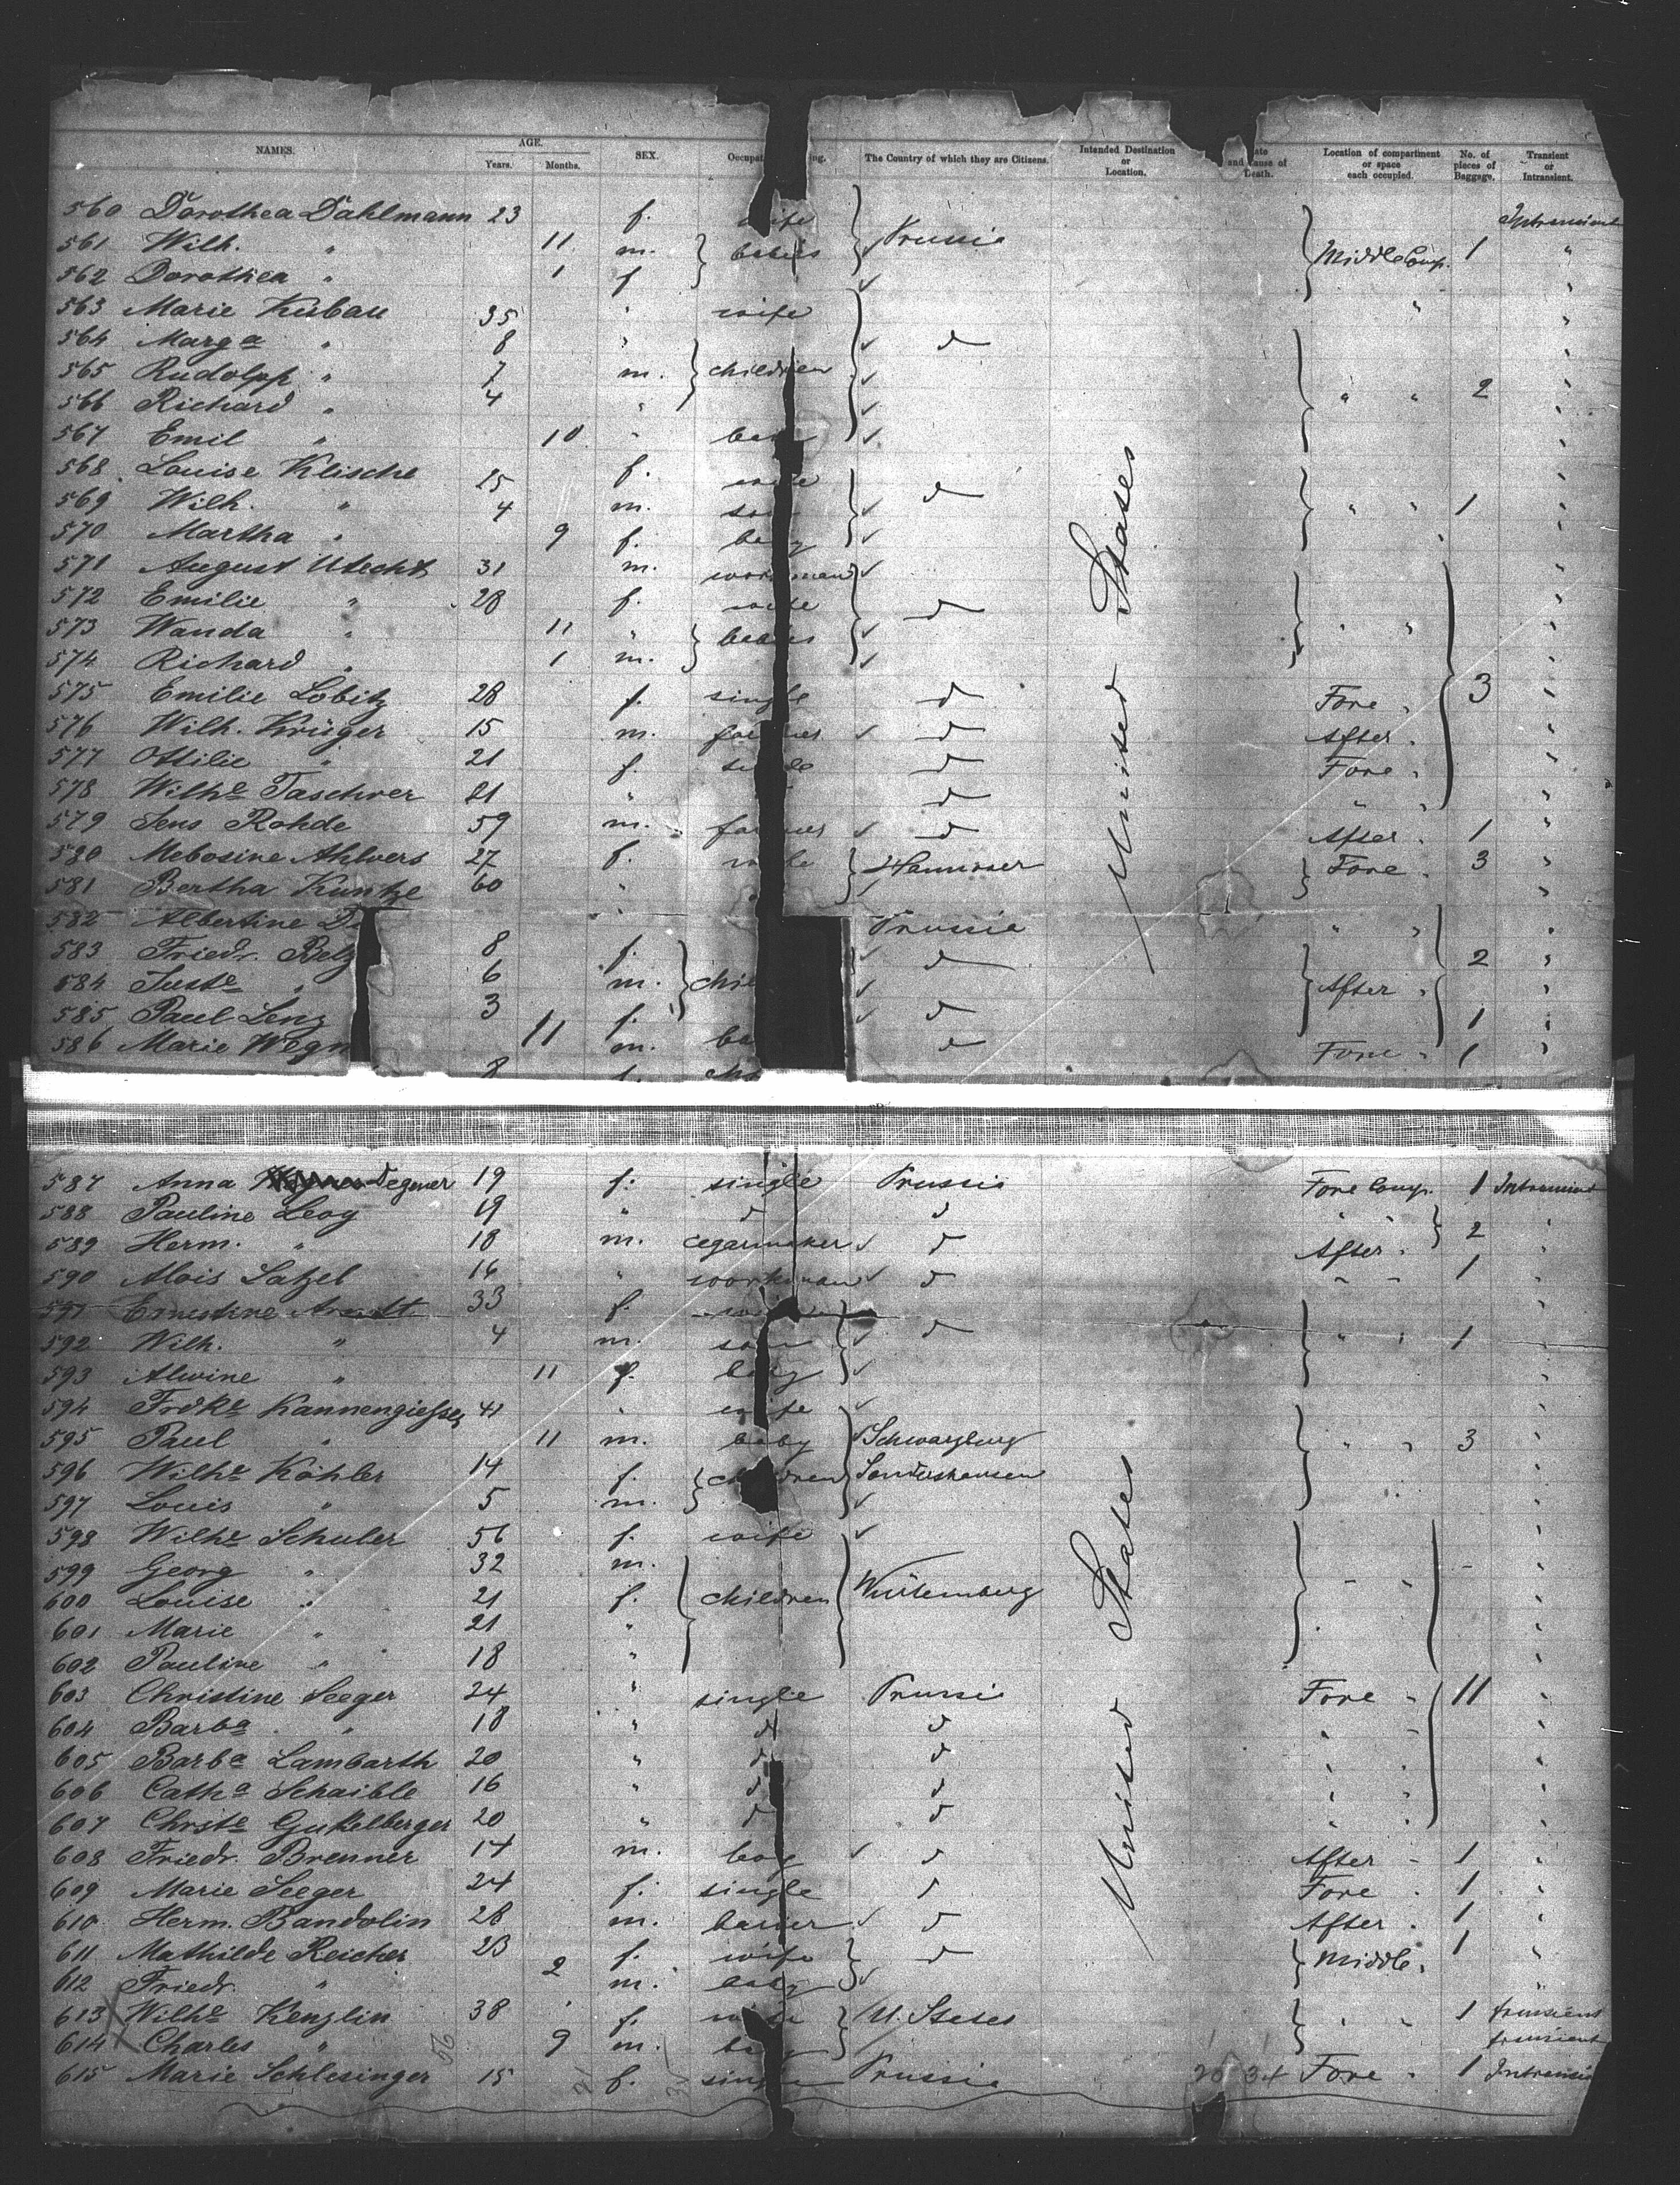 NAMES. AGE. Years. Months. SEX. The Country of which they are Citizens. Intended Destination or Location. Location of compartment or space each occupied. No. of pieces of Baggage. Transient or Intransient.
560 Dorothea Dahlmann 23 f. wife Prussia Intransient
561 Wilh. " 11 m. babies Middle Comp. 1 "
562 Dorothea " 1 f "
563 Marie Kubau 35 " wife " "
564 Marga " 8 " children d "
565 Rudolph " 7 m. "
566 Richard " 4 " " " 2 "
567 Emil " 10 " "
568 Louise Klische 25 f. d "
569 Wilh. " 4 m. " " 1 "
570 Martha " 9 f. "
571 August Utecht 31 m. "
572 Emilie " 28 f. d "
573 Wanda " 11 " babies " " "
574 Richard " 1 m. "
575 Emilie Lobitz 28 f. single d Fore " 3 "
576 Wilh. Krüger 15 m. d After " "
577 Ottilie " 21 f. d Fore " "
578 Wilhe Taschner 21 " d " " "
579 Jens Rohde 59 m. d After " 1 "
580 Mebosine Ahlvers 27 f. Hannover Fore " 3 "
581 Bertha Kuntze 60 " "
582 Albertine Prussia " " "
583 Friedr. 8 f. d 2 "
584 Juste " 6 m. After " "
585 Paul Lenz 3 f. d 1 "
586 Marie 11 m. d Fore " 1 "
8 f.
United States
587 Anna Degener 19 f. single Prussia Fore Comp. 1 Intransient
588 Pauline Levy 19 " d d " " 2 "
589 Herm. " 18 m. cegarmaker d After " "
590 Alois Satzel 16 " workman d " " 1 "
591 Ernestine Arndt 33 f. "
592 Wilh. " 4 m. d " " 1 "
593 Alwine " 11 f. baby "
594 Frdke Kannengiesser 41 " wife "
595 Paul " 11 m. baby Schwarzburg " " 3 "
596 Wilhe Köhler 14 f. children Sondershausen "
597 Louis " 5 m. "
598 Wilhe Schuler 56 f. wife "
599 Georg " 32 m. "
600 Louise " 21 f. children Würtemberg " " "
601 Marie " 21 " "
602 Pauline " 18 " "
603 Christine Seeger 24 " single Prussi Fore " 11 "
604 Barba " 18 " d d " "
605 Barba Lambarth 20 " d d " "
606 Catha Schaible 16 " d d " "
607 Christe Gukelberger 20 " d d " "
608 Friedr. Brenner 14 m. boy d After " 1 "
609 Marie Seeger 24 f. single d Fore " 1 "
610 Herm. Bandolin 28 m. d After " 1 "
611 Mathilde Reicher 23 f. wife d Middle " 1 "
612 Friedr. " 2 m. baby "
613 Wilhe Kenzlin 38 f. U. States " " 1 transient
614 Charles " 9 m. transient
615 Marie Schlesinger 15 f. single Prussia Fore " 1
United States